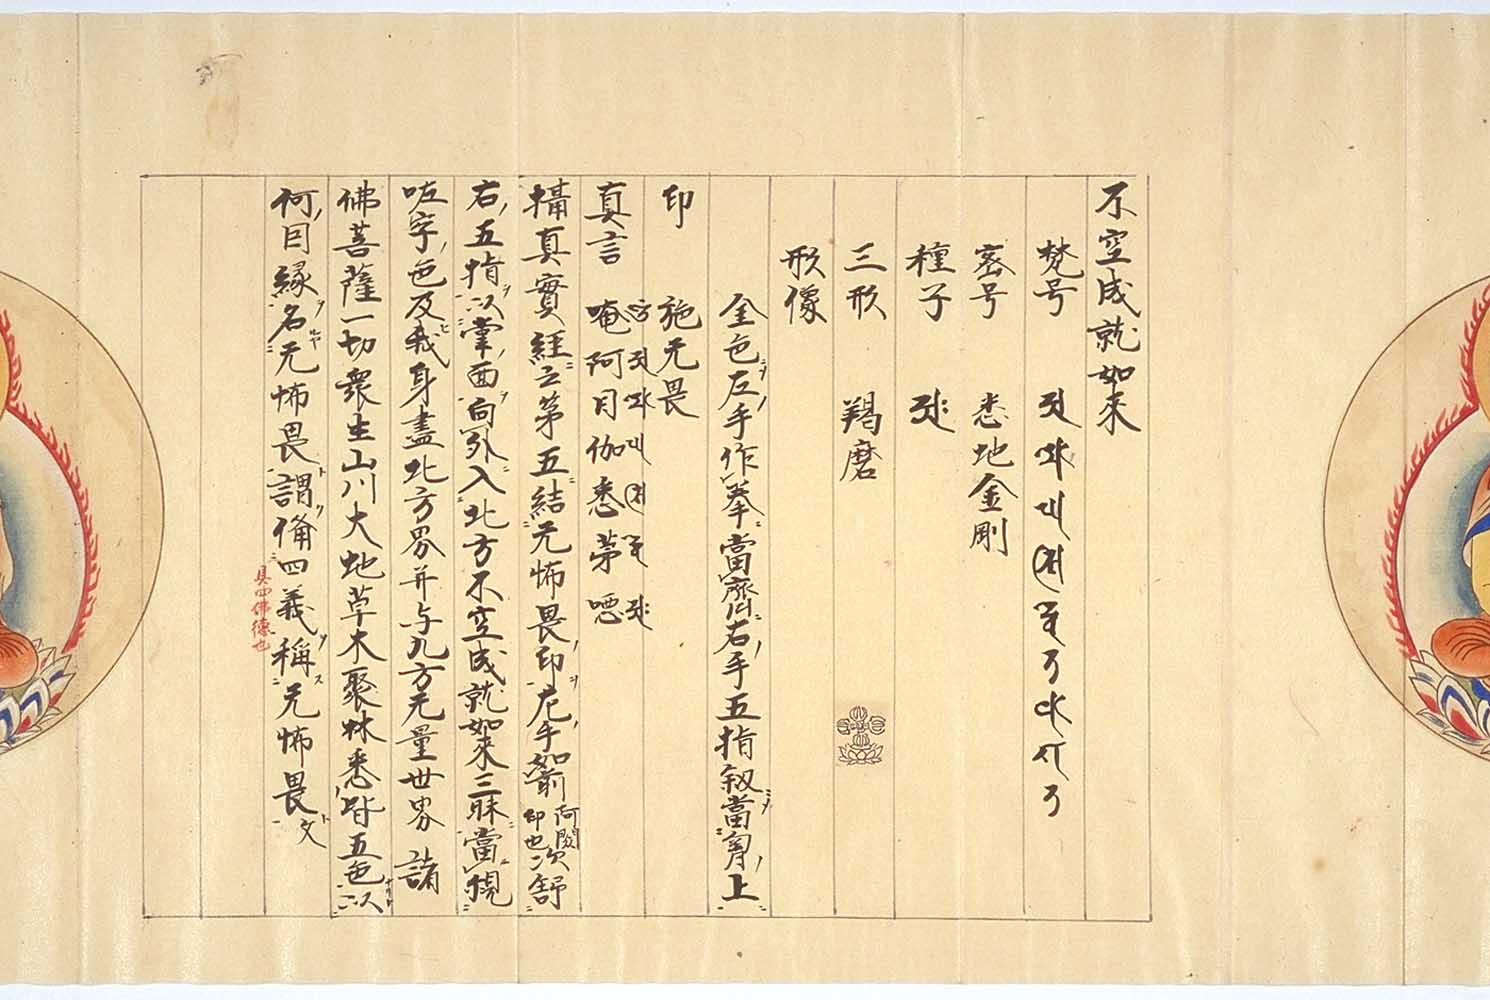 不空成就如來
梵号
密号 悉地金剛
種子
三形 羯磨
形像
金色左手作拳當齊右手五指釼當胷上
印 施无畏
真言 唵阿目伽悉苐𠹈
攝真實経云第五結无怖畏印左手如前阿閦印也次舒
右五指以掌面向外入北方不空成就如來三昧當觀
字色及我身盡北方界并与九方无量世界諸
佛菩薩一切衆生山川大地草木聚林悉皆五色以
何因縁名无怖畏謂備四義稱无怖畏文
具四佛德也